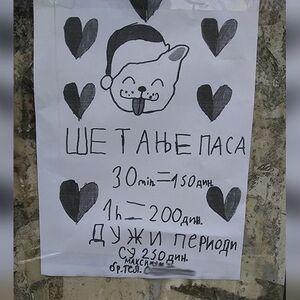 ШЕТАЊЕ ПАСА
30 min = 150 дин.
1h = 200 дин.
ДУЖИ ПЕРИОДИ
СУ 250 дин.
МАКСИМУМ
бр. тел.